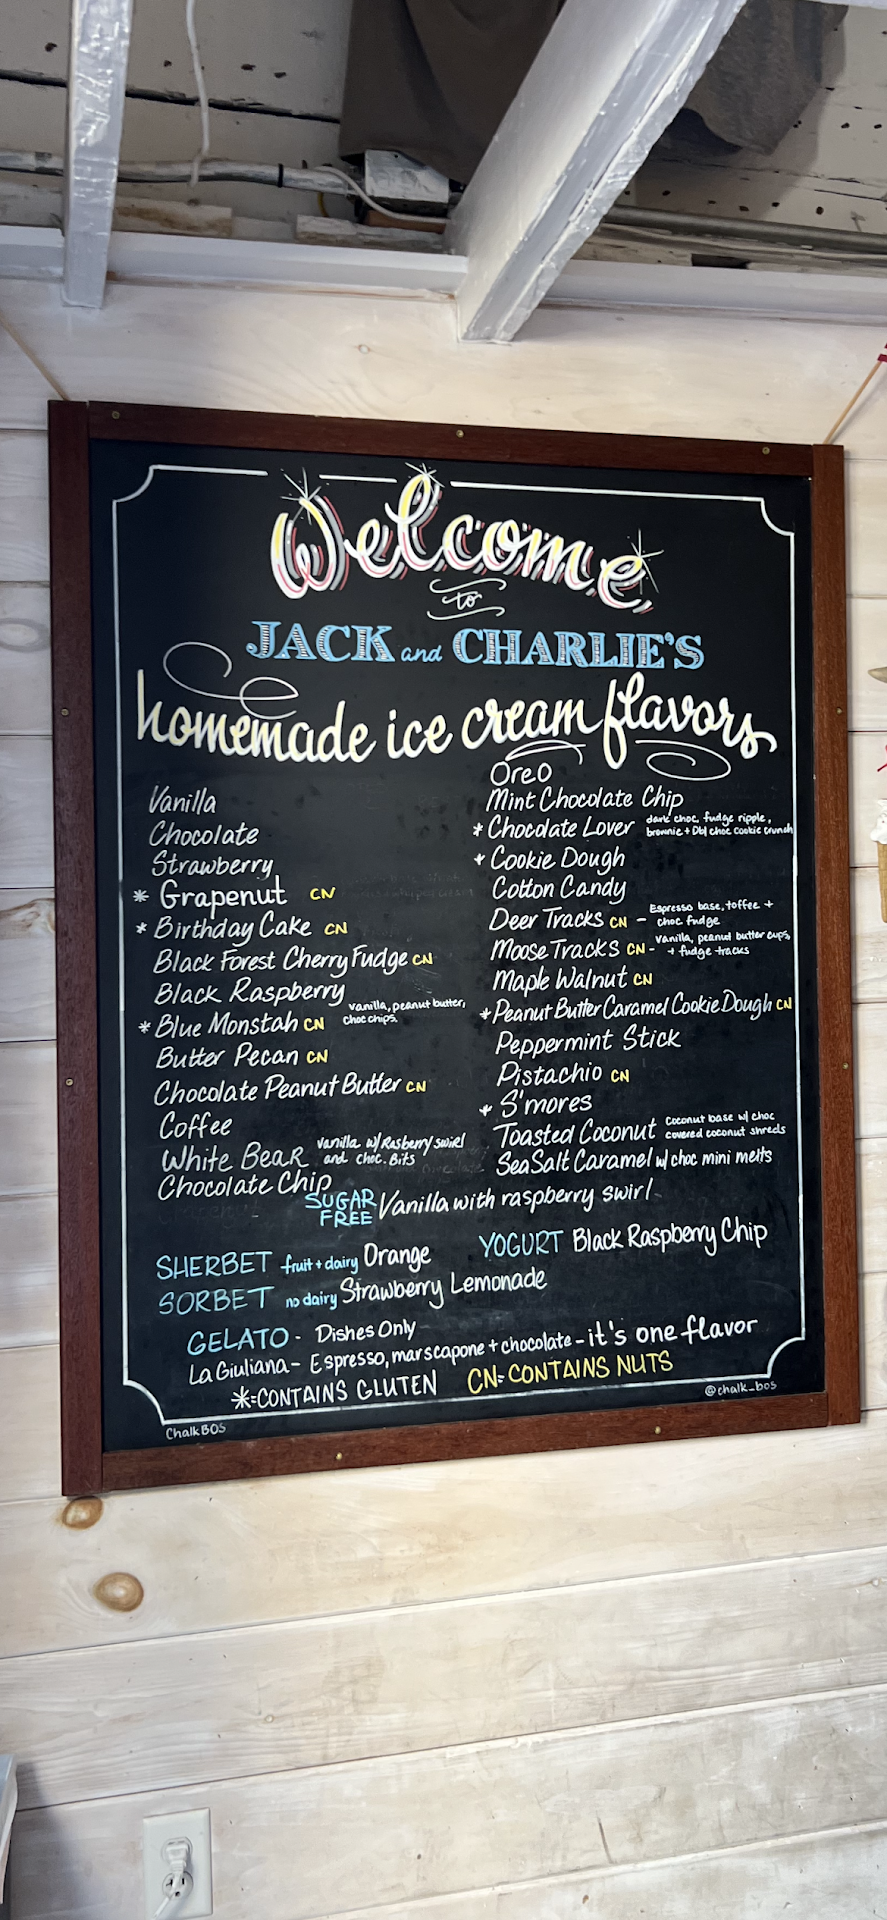 Welcome
to
JACK and CHARLIE'S
homemade ice cream flavors
Vanilla
Chocolate
Strawberry
* Grapenut CN
* Birthday Cake CN
Black Forest Cherry Fudge CN
Black Raspberry
* Blue Monstah CN vanilla, peanut butter,
choc chips.
Butter Pecan CN
Chocolate Peanut Butter CN
Coffee
White Bear vanilla w/ Rasberry swirl
and choc. Bits
Chocolate Chip
Oreo
Mint Chocolate Chip
* Chocolate Lover dark choc, fudge ripple,
brownie + Dbl choc cookie crunch
* Cookie Dough
Cotton Candy
Deer Tracks CN - Espresso base, toffee +
choc fudge
Moose Tracks CN - Vanilla, peanut butter cups,
+ fudge tracks
Maple Walnut CN
* Peanut Butter Caramel Cookie Dough CN
Peppermint Stick
Pistachio CN
* S'mores
Toasted Coconut Coconut base w/ choc
covered coconut shreds
Sea Salt Caramel w/ choc mini melts
SUGAR FREE Vanilla with raspberry swirl
SHERBET fruit + dairy Orange
YOGURT Black Raspberry Chip
SORBET no dairy Strawberry Lemonade
GELATO - Dishes Only
La Giuliana - Espresso, marscapone + chocolate - it's one flavor
*=CONTAINS GLUTEN CN=CONTAINS NUTS
@chalk_bos
ChalkBOS